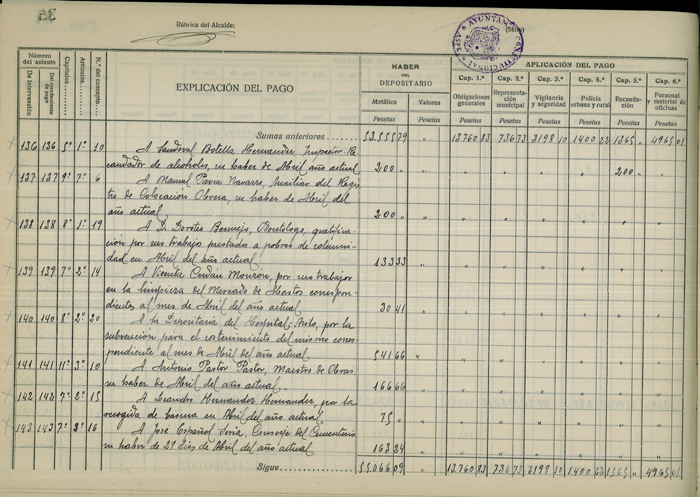 Rúbrica del Alcalde:
(Sello)
AYUNTAMIENTO CONSTITUCIONAL
Número del asiento
De intervención
Del mandamiento de pago
Capítulos
Artículos
N.º del concepto
EXPLICACIÓN DEL PAGO
HABER DEL DEPOSITARIO
Metálico
Valores
Pesetas
Pesetas
APLICACIÓN DEL PAGO
Cap. 1.º Cap. 2.º Cap. 3.º Cap. 4.º Cap. 5.º Cap. 6.º
Obligaciones generales
Representación municipal
Vigilancia y seguridad
Policía urbana y rural
Recaudación
Personal y material de oficinas
Pesetas Pesetas Pesetas Pesetas Pesetas Pesetas
Sumas anteriores 53.555 79 " 13.760 83 736 73 3198 10 1400 22 1365 " 4965 01
136 136 5º 1º 10 A Sandoval Botella Hernandez, Inspector Re-
caudador de alcoholes, su haber de Abril año actual 200 " 200 "
137 137 9º 7º 6 A Manuel Pavia Navarro, Auxiliar del Regis-
tro de Colocación Obrera, su haber de Abril del
año actual 200 "
138 138 8º 1º 19 A D. Doroteo Bermejo, Odontólogo, gratifica-
ción por sus trabajos prestados a pobres de solemni-
dad en Abril del año actual 133 33
139 139 7º 2º 14 A Vicenta Cerdán Monzón, por sus trabajos
en la limpieza del Mercado de Abastos correspon-
dientes al mes de Abril del año actual 30 41
140 140 8º 2º 20 A la Depositaria del Hospital-Asilo, por la
subvención para el sostenimiento del mismo corres-
pondiente al mes de Abril del año actual 541 66
141 141 11º 3º 10 A Antonio Pastor Pastor, Maestro de Obras
su haber de Abril del año actual 166 66
142 142 7º 2º 15 A Leandro Hernandez Hernandez, por la
recogida de basura en Abril del año actual 75 "
143 143 7º 3º 16 A José Español Soria, Conserje del Cementerio
su haber de 29 días de Abril del año actual 163 24
Sigue 55.066 09 " 13.760 83 736 73 3198 10 1400 22 1565 " 4965 01